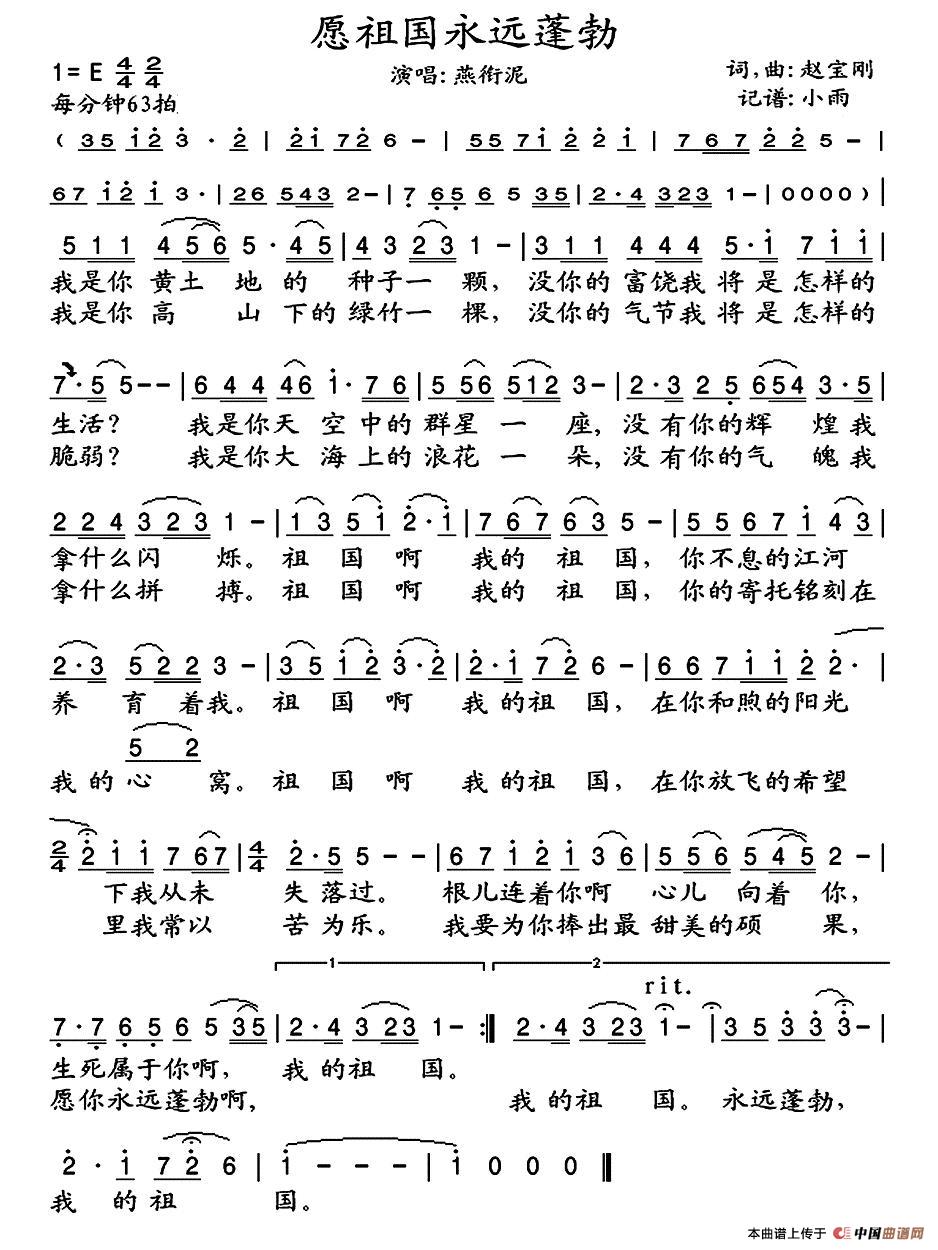 愿祖国永远蓬勃
1=E 4/4 2/4
演唱:燕衔泥
词,曲:赵宝刚
每分钟63拍
记谱:小雨
( 3 5 i 2 3 · 2 | 2 i 7 2 6 - | 5 5 7 i 2 2 i | 7 6 7 2 2 5 - |
6 7 i 2 i 3 · | 2 6 5 4 3 2 - | 7 6 5 6 5 3 5 | 2 · 4 3 2 3 1 - | 0 0 0 0 ) |
5 1 1 4 5 6 5 · 4 5 | 4 3 2 3 1 - | 3 1 1 4 4 4 5 · i 7 i i |
我是你 黄土 地 的 种子一 颗, 没你的富饶我 将 是 怎样的
我是你 高 山 下的绿竹一 棵, 没你的气节我 将 是 怎样的
7 · 5 5 - - | 6 4 4 4 6 i · 7 6 | 5 5 6 5 1 2 3 - | 2 · 3 2 5 6 5 4 3 · 5 |
生活? 我是你天 空 中的 群星 一 座, 没 有你的辉 煌 我
脆弱? 我是你大 海 上的 浪花 一 朵, 没 有你的气 魄 我
2 2 4 3 2 3 1 - | 1 3 5 i 2 · i | 7 6 7 6 3 5 - | 5 5 6 7 i 4 3 |
拿什么闪 烁。 祖 国 啊 我的 祖 国, 你不息的江河
拿什么拼 搏。 祖 国 啊 我的 祖 国, 你的寄托铭刻在
2 · 3 5 2 2 3 - | 3 5 i 2 3 · 2 | 2 · i 7 2 6 - | 6 6 7 i i 2 2 · |
养 育 着我。 祖 国 啊 我 的祖 国, 在你和煦的阳光
5 2
我 的 心 窝。 祖 国 啊 我 的祖 国, 在你放飞的希望
2/4 2 i i 7 6 7 | 4/4 2 · 5 5 - - | 6 7 i 2 i 3 6 | 5 5 6 5 4 5 2 - |
下我从未 失 落过。 根儿连着你啊 心儿 向着 你,
里我常以 苦 为乐。 我要为你捧出最 甜美的硕 果,
1 2
rit.
7 · 7 6 5 6 5 3 5 | 2 · 4 3 2 3 1 - :| 2 · 4 3 2 3 1 - | 3 5 3 3 3 - |
生死属于你啊, 我 的祖 国。
愿你永远蓬勃啊, 我 的祖 国。 永远蓬勃,
2 · i 7 2 6 | i - - - | i 0 0 0 ||
我 的祖 国。
本曲谱上传于 中国曲谱网